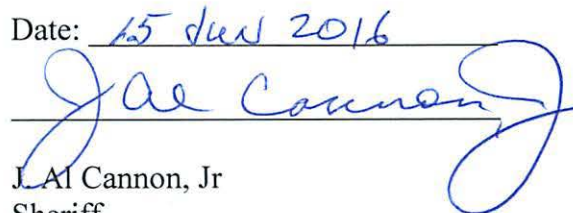 Date: 15 Jun 2016
J Al Cannon J
J. Al Cannon, Jr
Sheriff